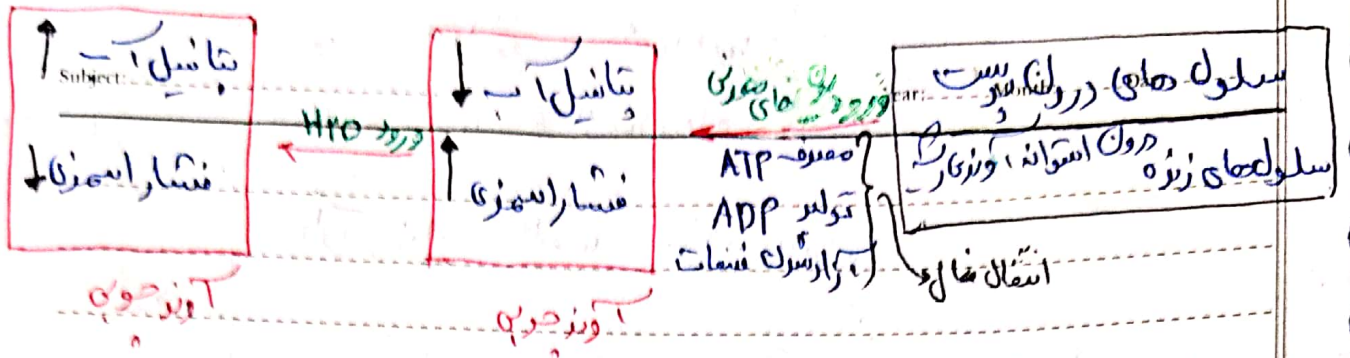 سلول های درون پوست
سلول های زنده درون استوانه آوندی ریشه
ورود یون های معدنی
مصرف ATP
تولید ADP
آزاد شدن فسفات
انتقال فعال
↓ پتانسیل آب
↑ فشار اسمزی
آوند چوبی
ورود H₂O
↑ پتانسیل آب
Subject:
↓ فشار اسمزی
آوند چوبی